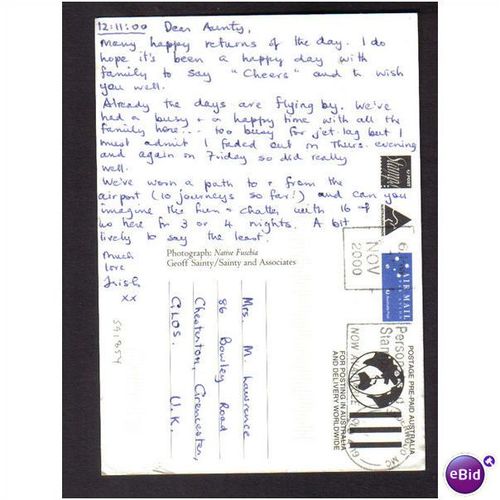 12:11:00 Dear Aunty,
Many happy returns of the day. I do
hope it's been a happy day with
family to say "Cheers" and to wish
you well.
Already the days are flying by. We've
had a busy + a happy time with all the
family here... too busy for jet-lag but I
must admit I faded out on Thurs. evening
and again on Friday so did really
well.
We've worn a path to + from the
airport (10 journeys so far!) and can you
imagine the fun + chatter with 16 of
us here for 3 or 4 nights. A bit
lively to say the least.
Much
love
Trish
xx
Photograph: Native Fuschia
Geoff Sainty/Sainty and Associates
Mrs. M. Lawrence
86 Bowley Road
Chesterton, Cirencester,
GLOS. U.K.
591854
Stamps
NOV
2000
AIR MAIL
POSTAGE PRE-PAID AUSTRALIA
FOR POSTING IN AUSTRALIA
AND DELIVERY WORLDWIDE
eBid